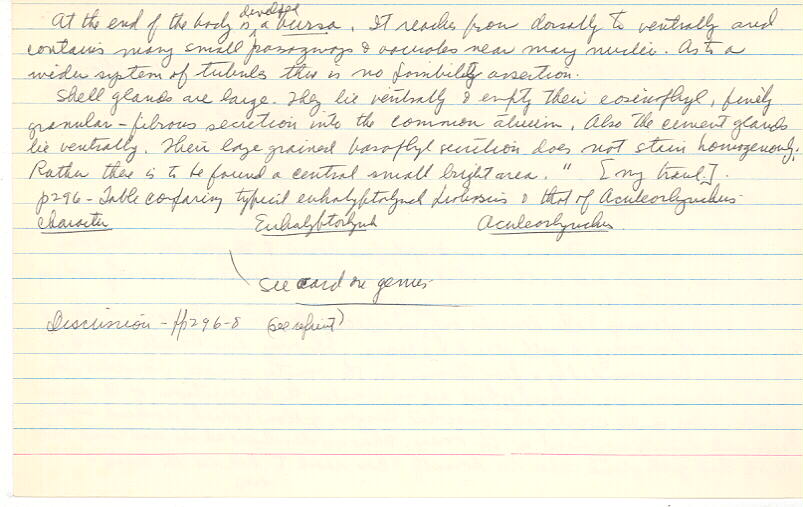 At the end of the body is developed a bursa. It reaches from dorsally to ventrally and
contains many small passageways & vacuoles near many nuclei. As to a
wider system of tubules there is no possibility assertion.
Shell glands are large. They lie ventrally & empty their eosinophyl, finely
granular-fibrous secretion into the common atrium. Also the cement glands
lie ventrally. Their large grained basophyl secretion does not stain homogenously.
Rather there is to be found a central small bright area." [my transl.].
p296 - Table comparing typical eukalyptorhynch proboscis & that of Aculeorhynchus-
Character Eukalyptorhynch Aculeorhynchus
See card on genus
Discussion - pp296-8 (see reprint)